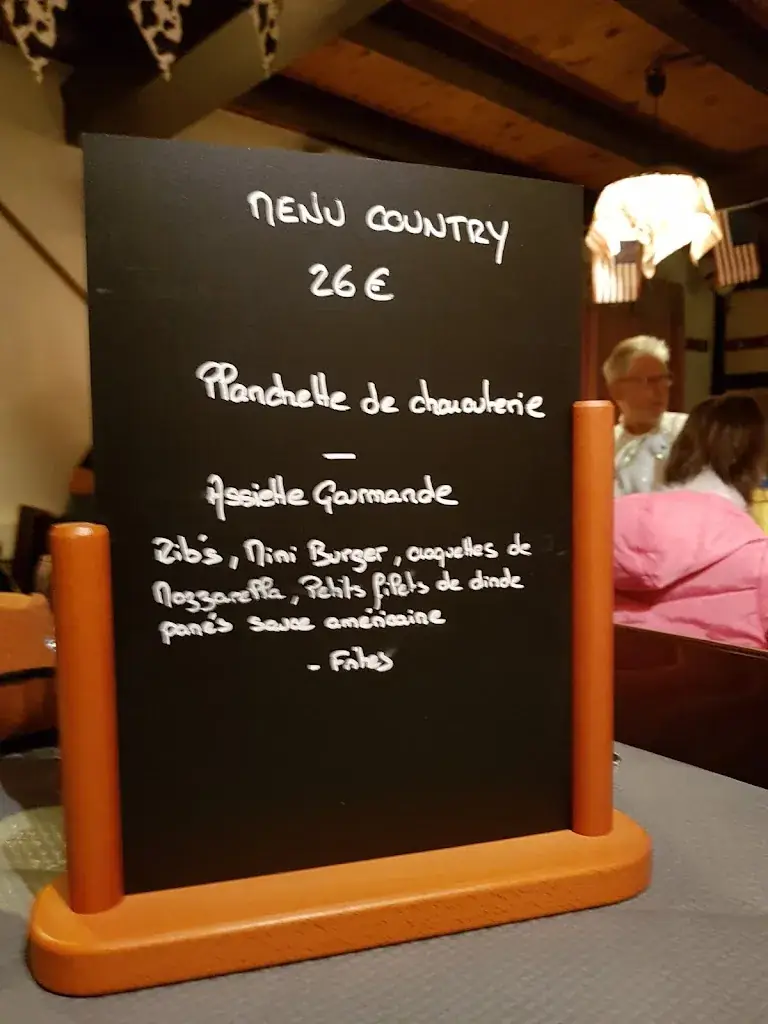 MENU COUNTRY
26 €
Planchette de charcuterie
—
Assiette Gourmande
Rib's, Mini Burger, croquettes de
Mozzarella, Petits filets de dinde
panés sauce américaine
- Frites